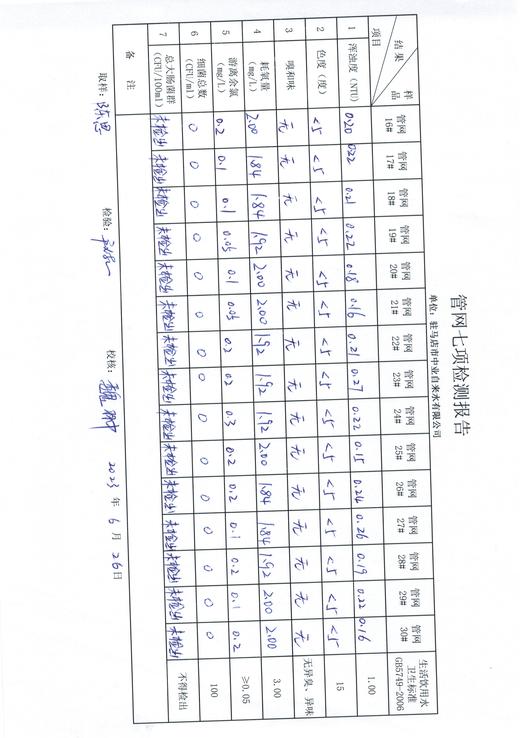 管网七项检测报告
单位：驻马店市中业自来水有限公司
样品 结果 项目 管网16# 管网17# 管网18# 管网19# 管网20# 管网21# 管网22# 管网23# 管网24# 管网25# 管网26# 管网27# 管网28# 管网29# 管网30# 生活饮用水卫生标准GB5749-2006
1 浑浊度（NTU） 0.20 0.22 0.21 0.22 0.18 0.16 0.21 0.27 0.22 0.15 0.24 0.26 0.19 0.22 0.16 1.00
2 色度（度） <5 <5 <5 <5 <5 <5 <5 <5 <5 <5 <5 <5 <5 <5 <5 15
3 嗅和味 无 无 无 无 无 无 无 无 无 无 无 无 无 无 无 无异臭、异味
4 耗氧量（mg/L） 2.00 1.84 1.84 1.92 2.00 2.00 1.92 1.92 1.92 2.00 1.84 1.84 1.92 2.00 2.00 3.00
5 游离余氯（mg/L） 0.2 0.1 0.1 0.05 0.1 0.05 0.2 0.2 0.3 0.2 0.2 0.1 0.2 0.1 0.2 ≥0.05
6 细菌总数（CFU/ml） 0 0 0 0 0 0 0 0 0 0 0 0 0 0 0 100
7 总大肠菌群（CFU/100ml） 未检出 未检出 未检出 未检出 未检出 未检出 未检出 未检出 未检出 未检出 未检出 未检出 未检出 未检出 未检出 不得检出
备 注
取样： 检验： 校核： 2023 年 6 月 26 日